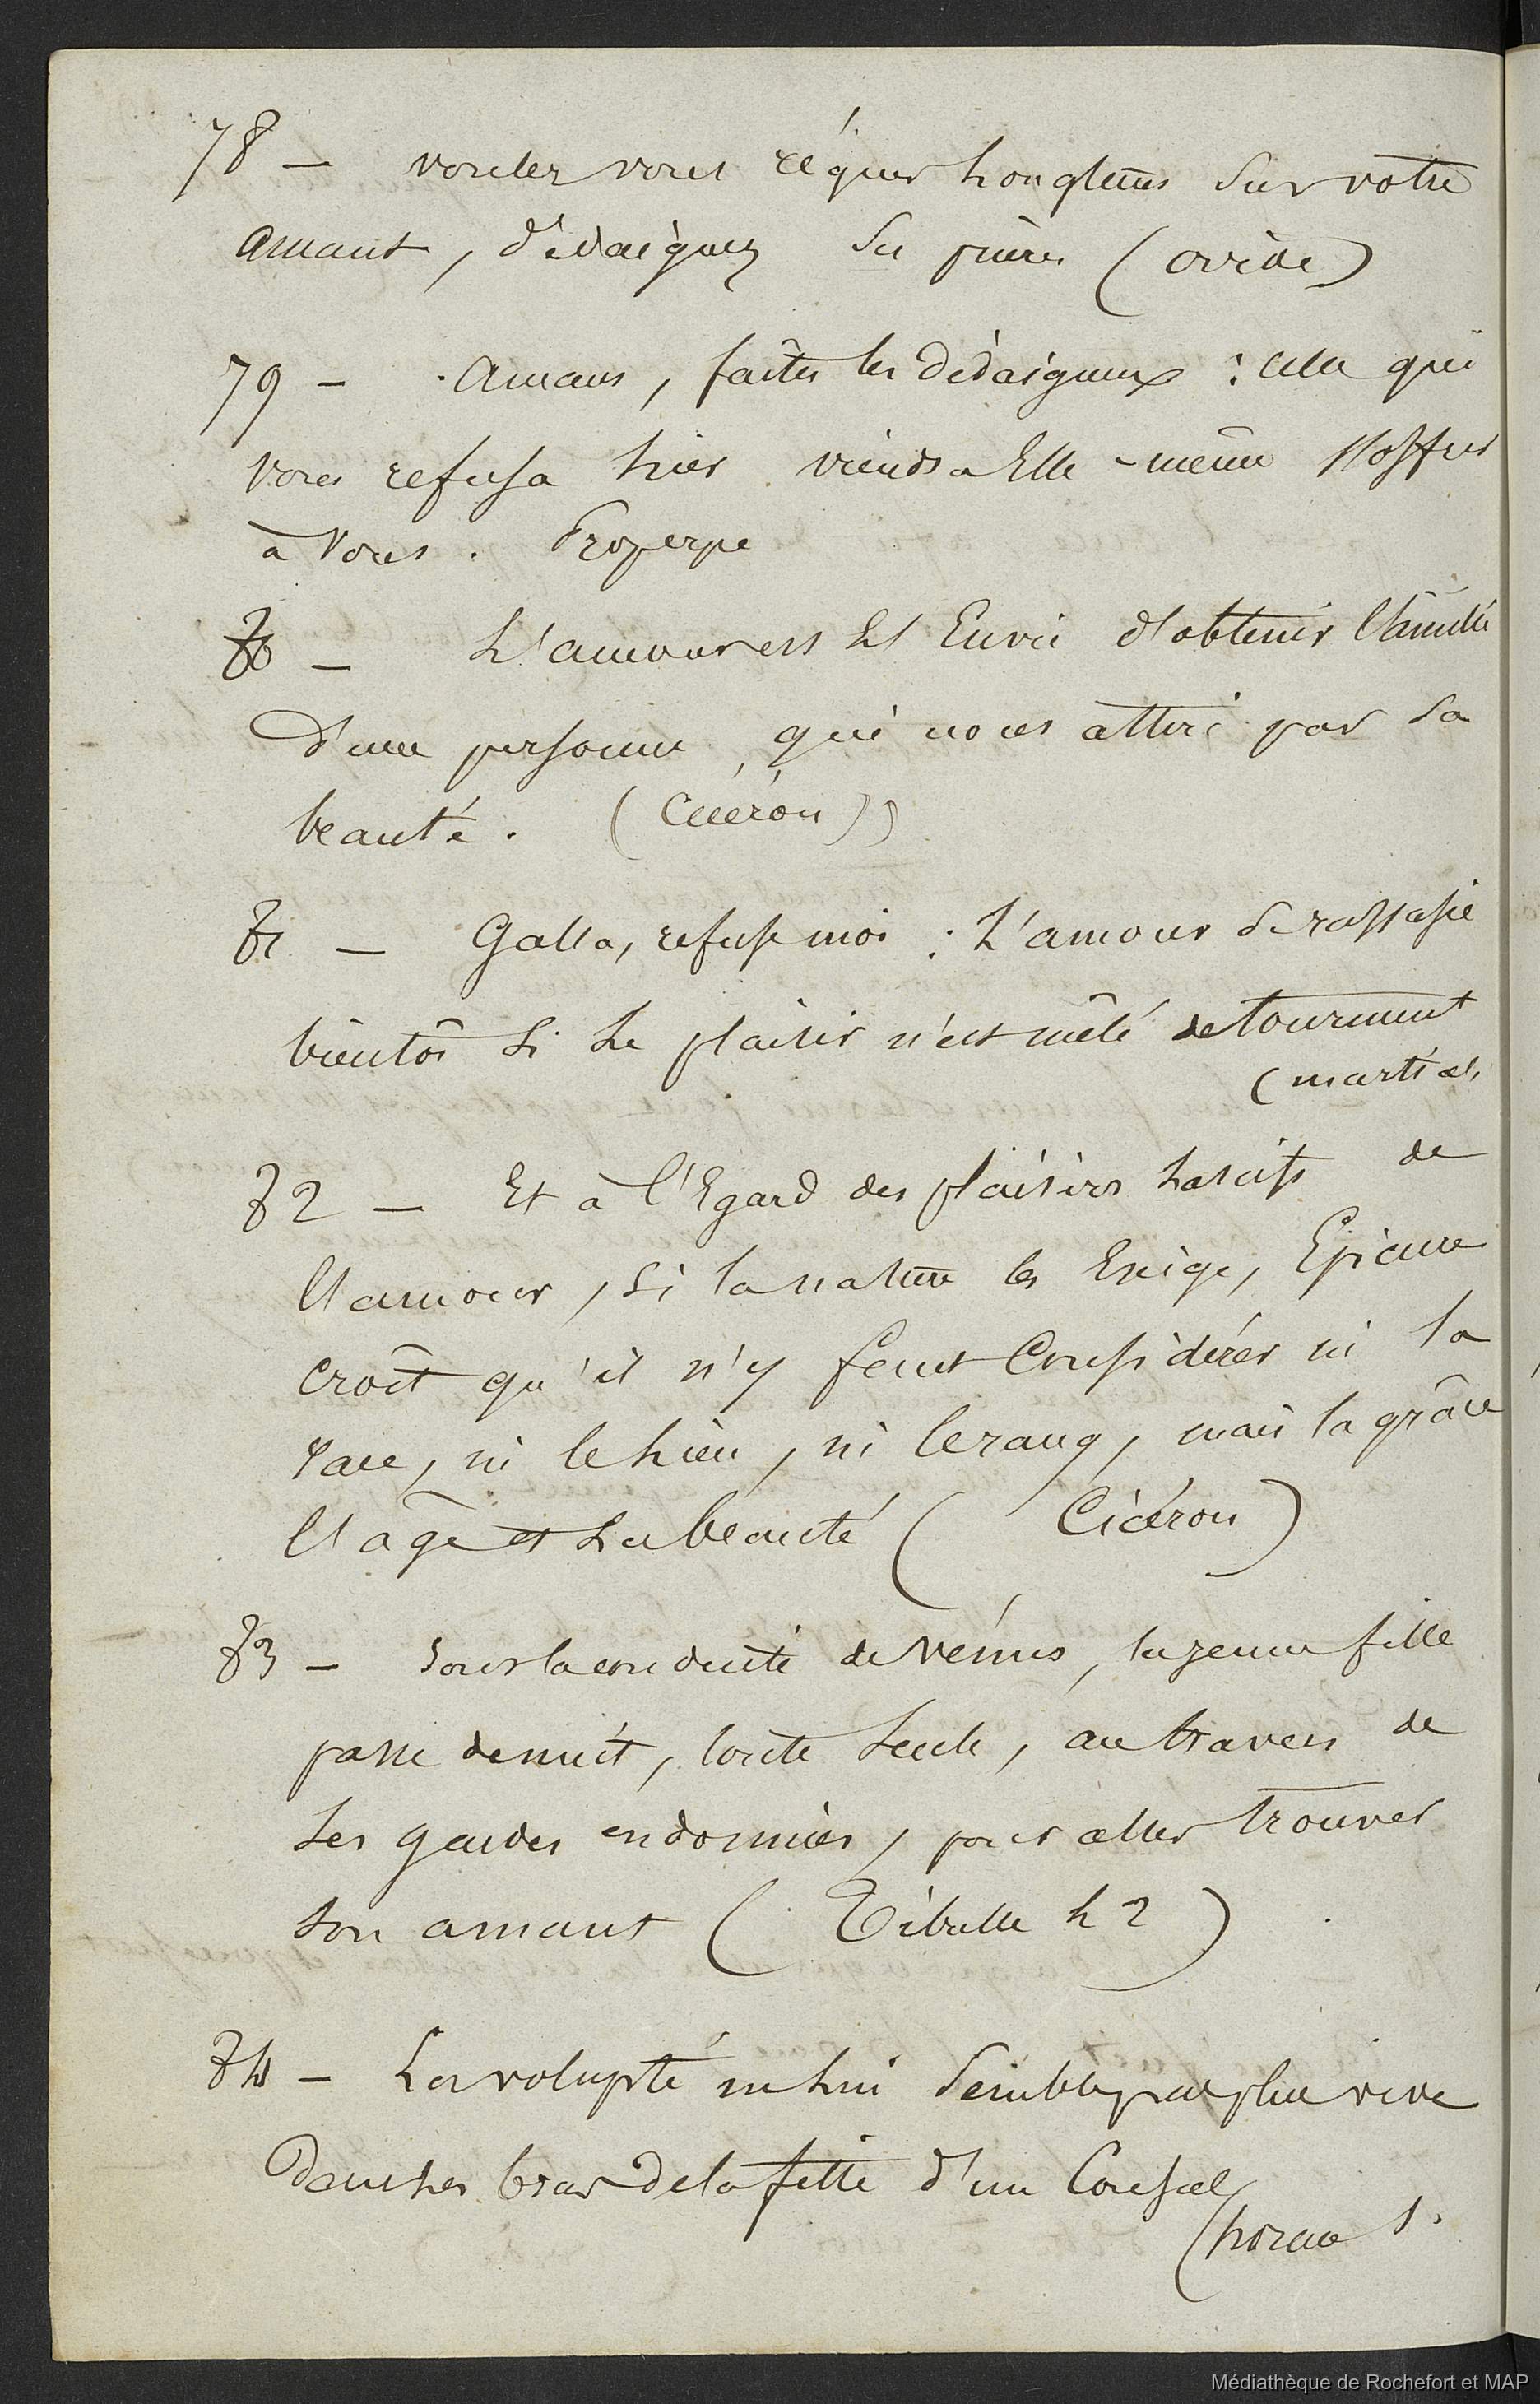 78 — voulez vous régner longtems sur votre
amant, dédaignez ses prières (ovide)
79 — Amans, faites les dédaigneux : celle qui
vous refusa hier viendra Elle-même s'offrir
à vous. Properpe
80 — L'amour est l'Envie d'obtenir l'amitié
d'une personne, qui nous attire par sa
beauté. (Cicéron))
81 — Galla, refuse moi : L'amour se rassasie
bientôt si le plaisir n'est mêlé de tourment
(martial,
82 — Et à l'Egard des plaisirs lascifs de
l'amour, si la nature les Exige, Epicure
croit qu'il n'y faut Considérer ni la
race, ni le lieu, ni le rang, mais la grâce
l'age et la beauté (Cicéron)
83 — Sous la conduite de vénus, la jeune fille
passe de nuit, toute seule, au travers de
ses gardes endormies, pour aller trouver
son amant (Tibulle L 2)
84 — La volupté ne lui semble pas plus vive
Dans les bras de la fille d'un Consul
(horace 1.
Médiathèque de Rochefort et MAP